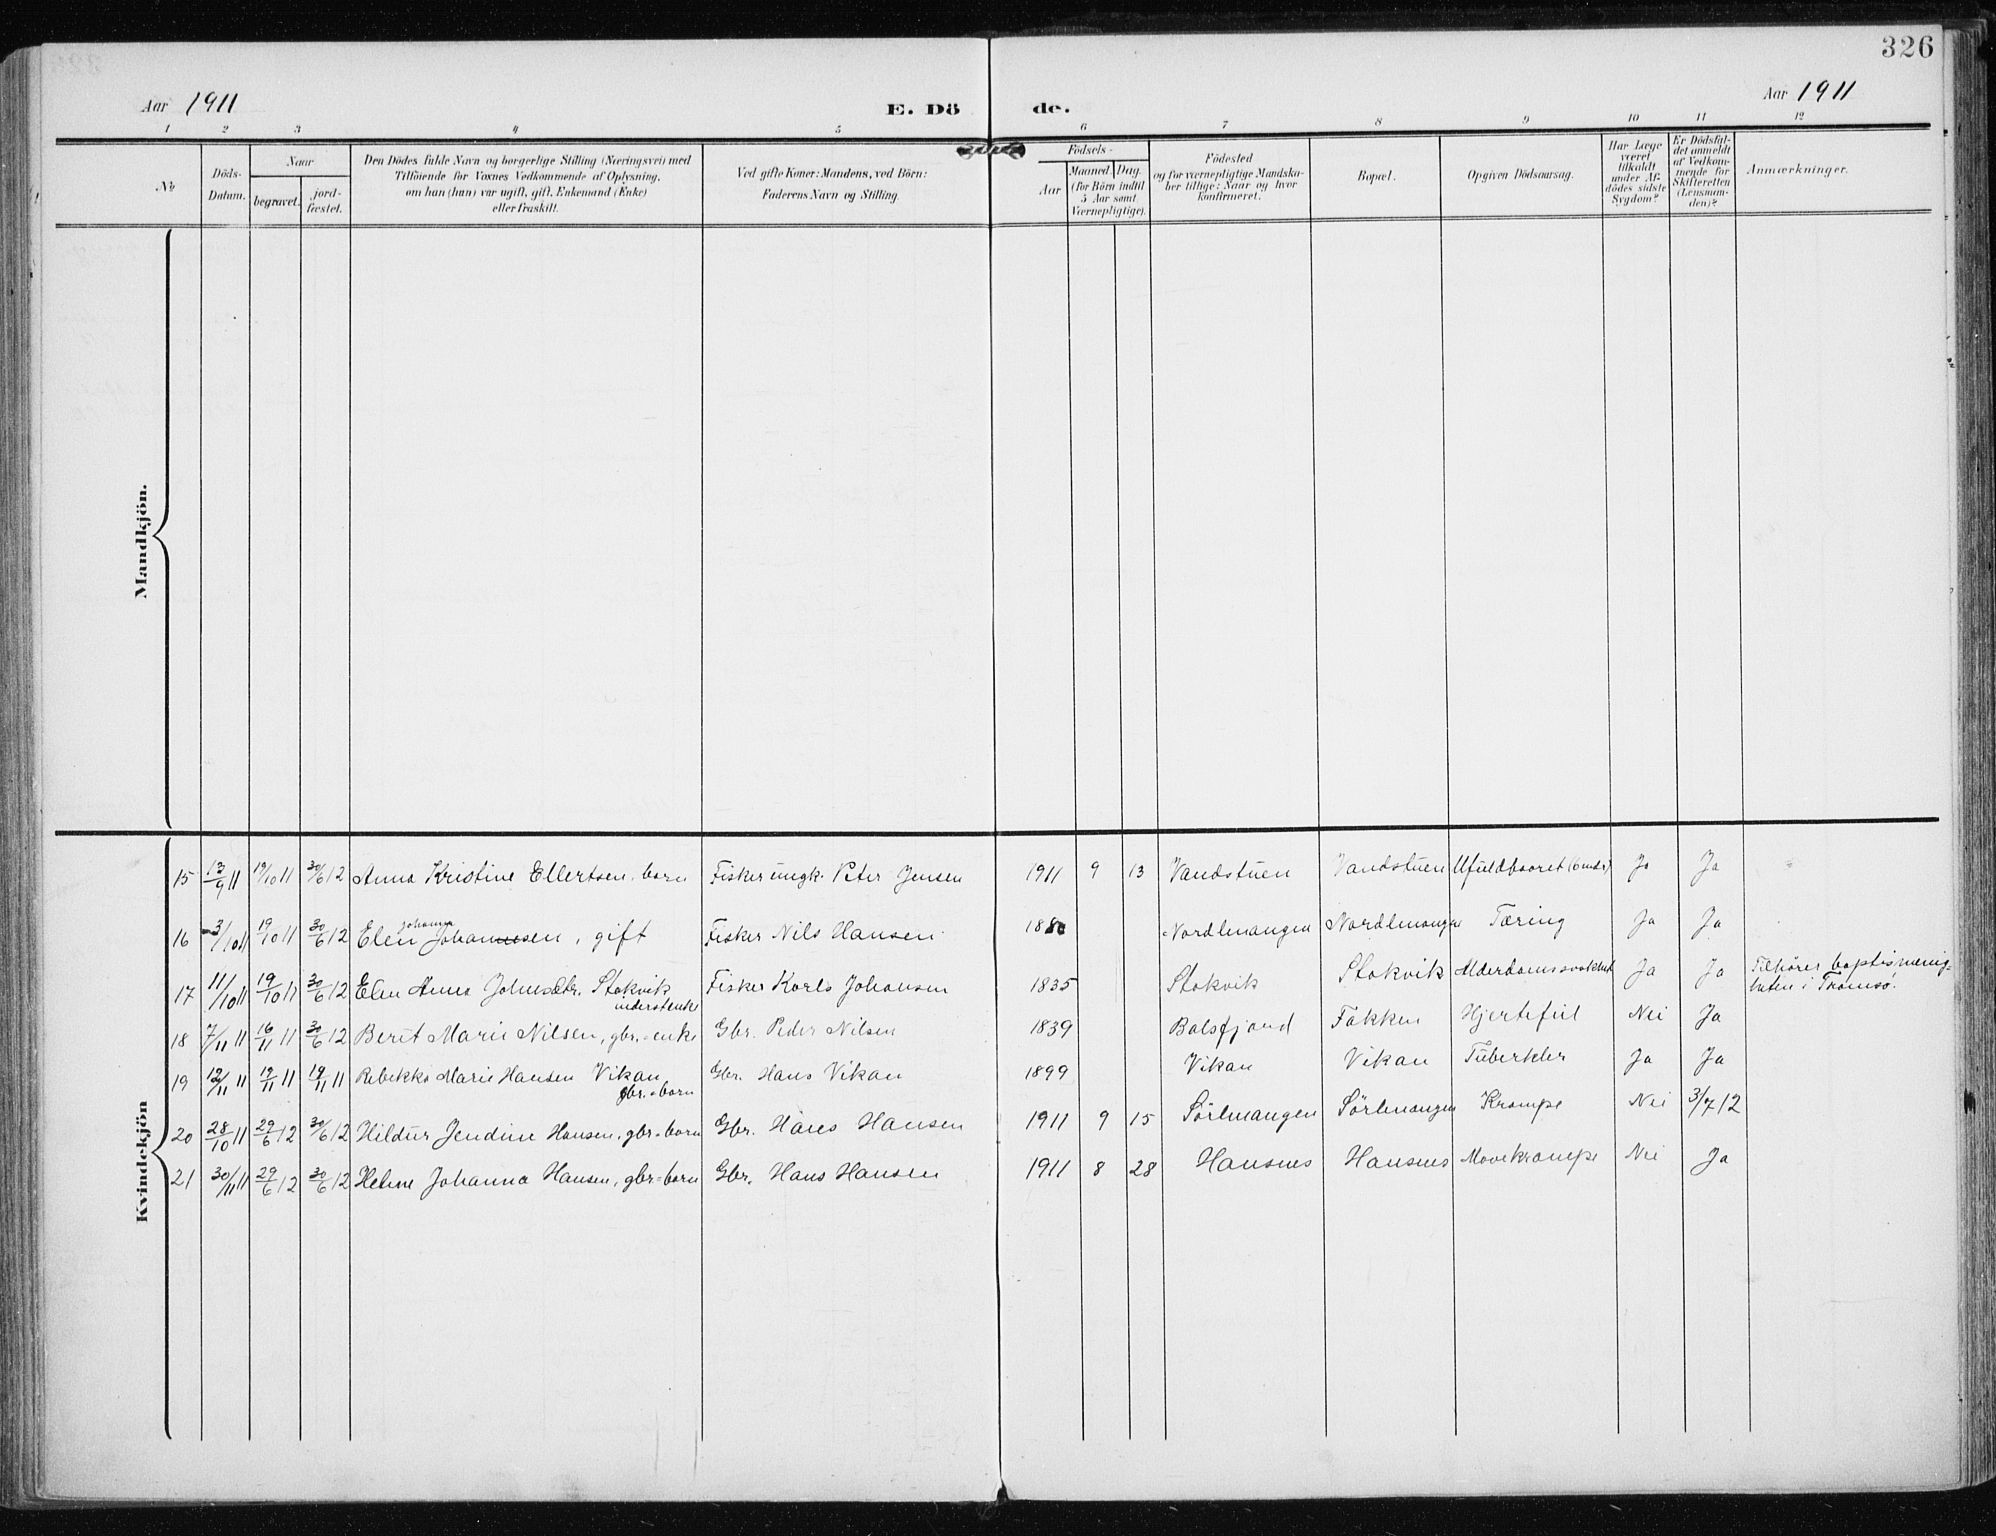 326
Aar 1911
E. Dö de.
Aar 1911
1 2 3 4 5 6 7 8 9 10 11 12
No
Döds-Datum.
Naar
begravet.
jord-fæstet.
Den Dödes fulde Navn og borgerlige Stilling (Næringsvei) med
Tilföiende for Voxnes Vedkommende af Oplysning,
om han (hun) var ugift, gift, Enkemand (Enke)
eller fraskilt.
Ved gifte Koner: Mandens, ved Börn:
Faderens Navn og Stilling.
Födsels-
Aar
Maaned. Dag.
(for Börn indtil
5 Aar samt
Værnepligtige).
Födested
og for værnepligtige Mandska-
ber tillige: Naar og hvor
konfirmeret.
Bopæl.
Opgiven Dödsaarsag.
Har Læge
været
tilkaldt
under Af-
dödes sidste
Sygdom?
Er Dödsfal-
det anmeldt
af Vedkom-
mende for
Skifteretten
(Lensman-
den)?
Anmærkninger.
Mandkjön.
Kvindekjön
15 13/9 11 19/10 11 30/6 12 Anna Kristine Ellertsen, barn Fisker ungk. Peter Jensen 1911 9 13 Vandstuen Vandstuen Ufuldbaaret (6 mdr) Ja Ja
Johanna
16 3/10 11 19/10 11 30/6 12 Elen Johannesen, gift Fisker Nils Hansen 188 Nordlenangen Nordlenangen Tæring Ja Ja
17 11/10 11 19/10 11 30/6 12 Elen Anna Johnsdtr. Stokvik Fisker Karls Johansen 1835 Stokvik Stokvik Alderdomssvakhet Ja Ja Tilhörer baptismenig-
inderstenke
heten i Tromsö.
18 7/11 11 16/11 11 30/6 12 Berit Marie Nilsen, gbr.-enke Gbr. Peder Nilsen 1839 Balsfjord Fakken Hjertefeil Nei Ja
19 12/11 11 19/11 11 19/11 11 Rebekka Marie Hansen Vikan Gbr. Hans Vikan 1899 Vikan Vikan Tuberkler Ja Ja
gbr.-barn
20 28/10 11 29/6 12 30/6 12 Hildur Jendine Hansen, gbr-barn Gbr. Hans Hansen 1911 9 15 Sörlenangen Sörlenangen Krampe Nei 3/7 12
21 30/11 11 29/6 12 30/6 12 Helene Johanna Hansen, gbr-barn Gbr. Hans Hansen 1911 8 28 Hansnes Hansnes Mavekrampe Nei Ja